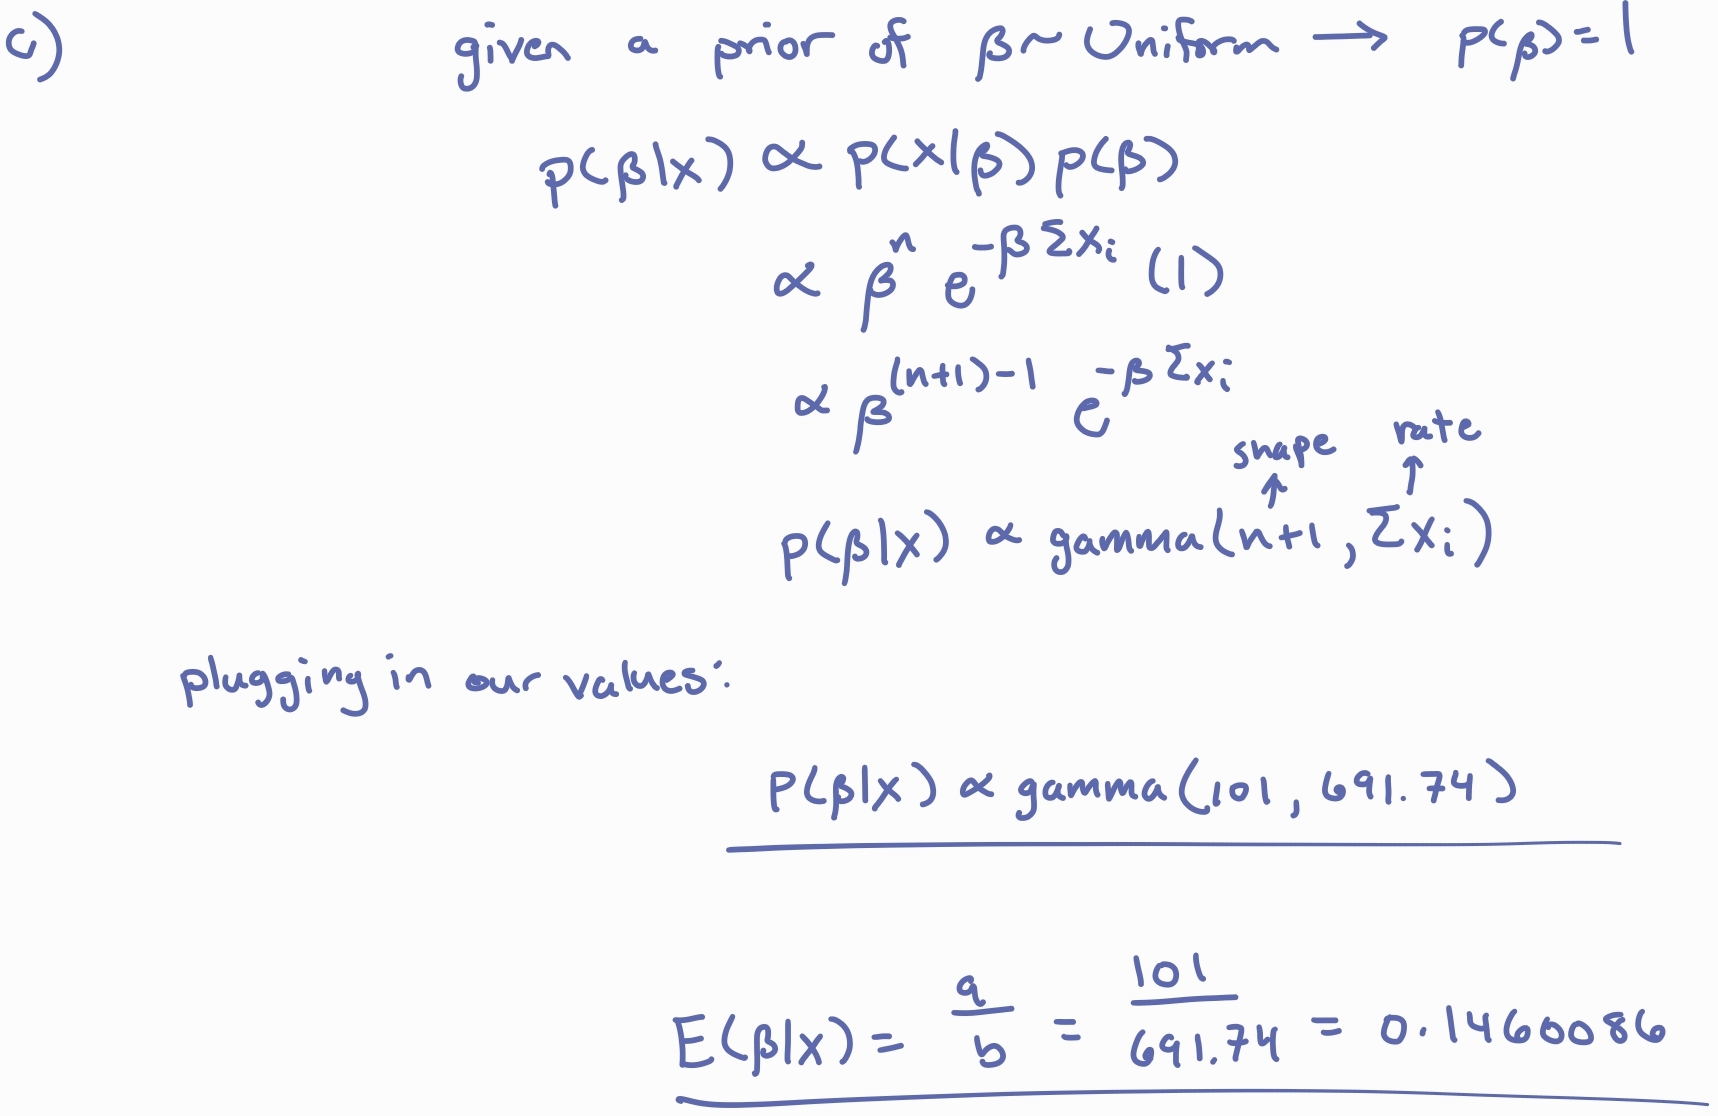 c) given a prior of β ~ Uniform → p(β) = 1
p(β|x) ∝ p(x|β) p(β)
∝ βⁿ e^{-β Σxᵢ} (1)
∝ β^{(n+1)-1} e^{-β Σxᵢ}
shape rate
↑ ↑
p(β|x) ∝ gamma(n+1, Σxᵢ)
plugging in our values:
P(β|x) ∝ gamma(101, 691.74)
E(β|x) = a/b = 101/691.74 = 0.1460086